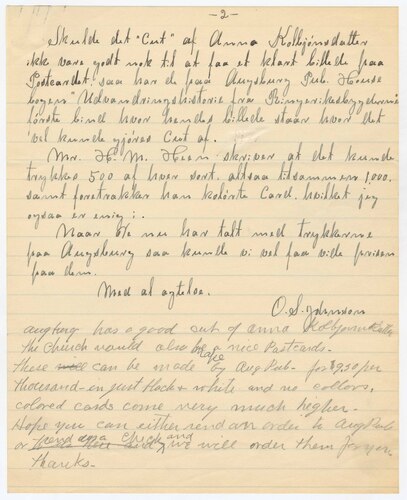 -2-
Skulde det "Cut" af Anna Kolbjörnsdatter
ikke vare godt nok til at faa et klart billede paa
Postcardet, saa har de paa Augsburg Pub. House
bogen "Udvandringshistorie fra Ringerikesbygderne"
förste bind hvor hendes billede staar hvor det
vel kunde gjöres Cut af.
Mr. H. M. Heen skriver at det kunde
trykkes 500 af hver sort, altsaa tilsammen 1000.
samt foretrakker han kolörte Card, hvilket jeg
ogsaa er enig i.
Naar De nu har talt med trykkerne
paa Augsburg saa kunde vi vel faa vide prisen
paa dem.
Med al agtelse.
O. S. Johnson
augburg has a good cut of anna Kolbjornsdatter
The Church would also make a nice Postcards-
These can be made by Aug Pub- for $9.50 per
thousand- in just black & white and no collors,
colored cards come very much higher.
Hope you can either send an order to Aug Pub
or send us a check and we will order them for you.
thanks-